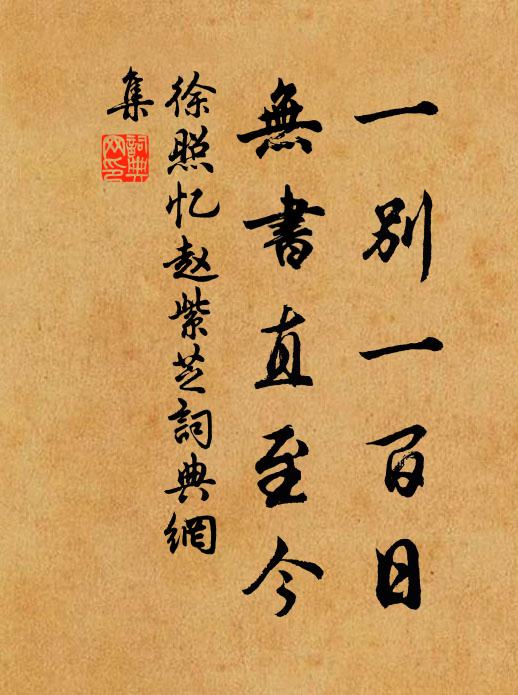 一别一百日
無書直至今
徐照忆赵紫芝詞典網
集
詞典網印